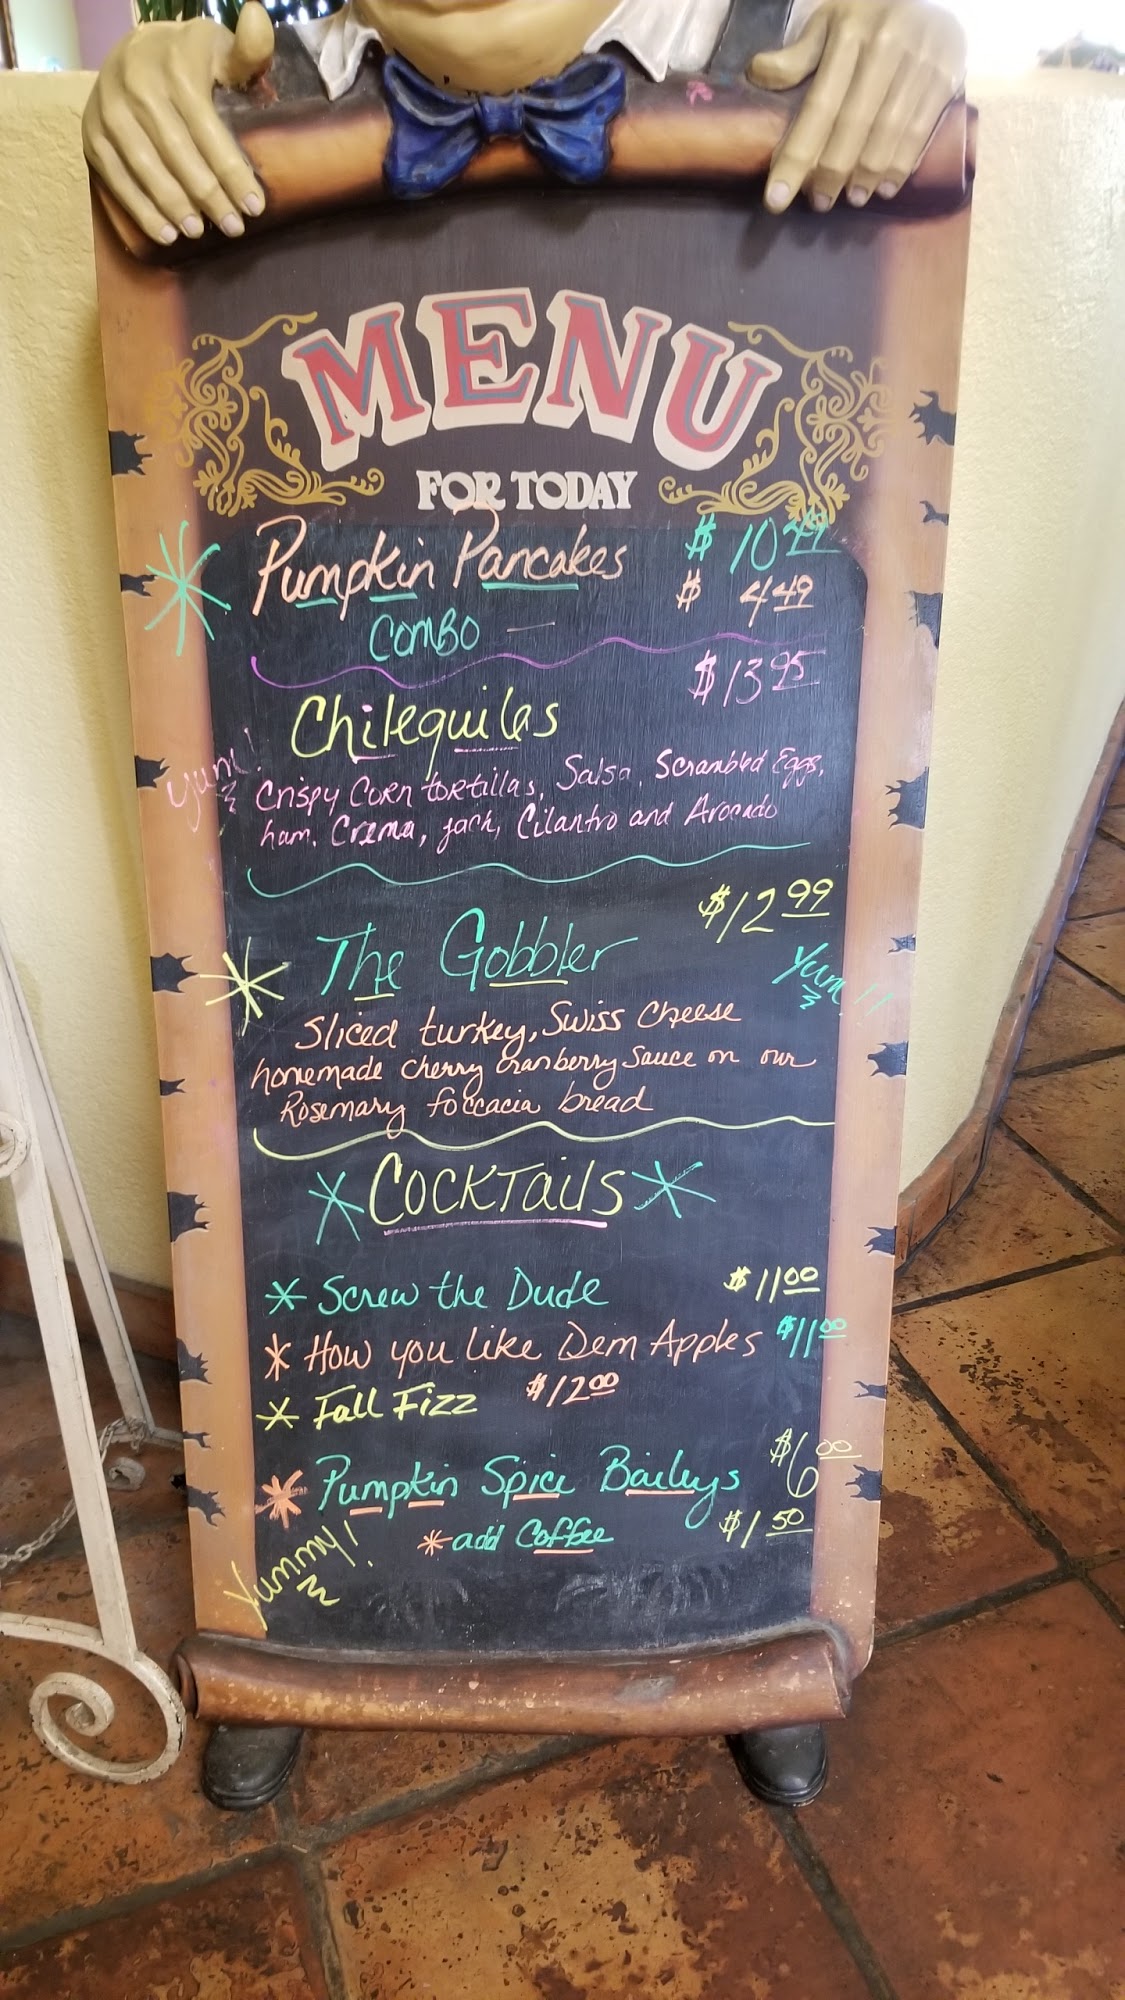 MENU
FOR TODAY
Pumpkin Pancakes $10 49
Combo — $4 49
$13 95
Chilequiles
Yum!
Crispy Corn tortillas, Salsa, Scrambled Eggs,
ham, Crema, jack, Cilantro and Avocado
$12 99
The Gobbler
Yum!!
Sliced turkey, Swiss Cheese
homemade cherry cranberry Sauce on our
Rosemary foccacia bread
Cocktails
Screw the Dude $11 00
How you like Dem Apples $11 00
Fall Fizz $12 00
Pumpkin Spice Baileys $6 00
add Coffee $1 50
Yummy!